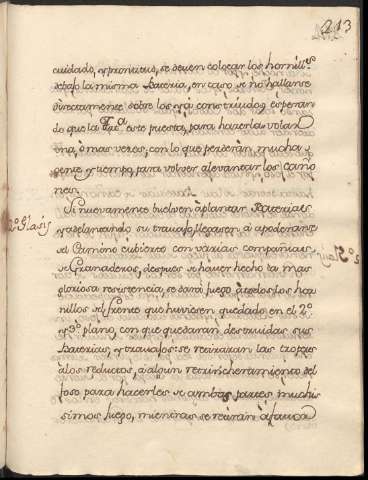 213
cuidado, y promptitud, se deven colocar los hornill.s
debajo la misma Bateria, en caso de no hallarse
directamente sobre los ya construidos esperan
do que la Art.a esté puesta, para hacerla volar
una, ó mas veces, con lo que perderàn mucha
gente, y tiempo, para volver alevantar los caño
nes.
Si nuevamente buelven áplantar Baterias
y adelantando su travajo llegasen à apoderarse
del Camino cubierto con varias compañias
de Granaderos, despues de haver hecho la mas
gloriosa resistencia, se darà fuego à todos los hor
nillos del frente que huviesen quedado en el 2.o
y 3.o plano, con que quedaran destruidas sus
Baterias, y travajos: se retiraràn las tropas
à los reductos, ó algun retrincheramiento del
foso para hacerles de ambas partes muchi
simo fuego, mientras se retiran
2.o Glasis